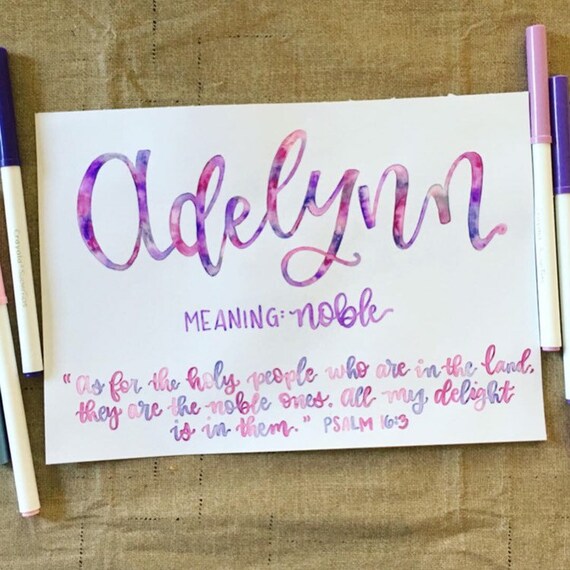 Adelynn
MEANING: noble
"As for the holy people who are in the land,
they are the noble ones. All my delight
is in them." PSALM 16:3